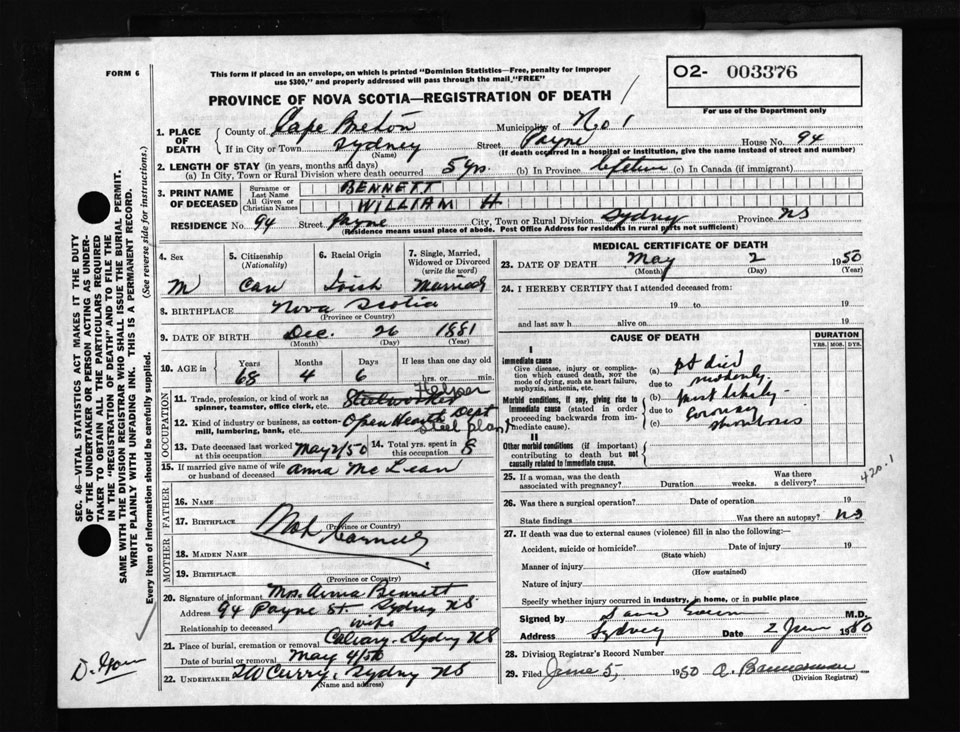 FORM 6
This form if placed in an envelope, on which is printed "Dominion Statistics—Free, penalty for improper
use $300," and properly addressed will pass through the mail "FREE"
O2- 003376
For use of the Department only
PROVINCE OF NOVA SCOTIA—REGISTRATION OF DEATH
1. PLACE OF DEATH
County of Cape Breton Municipality of No 1
If in City or Town Sydney Street Payne House No. 94
(Name) (If death occurred in a hospital or institution, give the name instead of street and number)
2. LENGTH OF STAY (in years, months and days)
(a) In City, Town or Rural Division where death occurred 5 yrs. (b) In Province lifetime (c) In Canada (if immigrant)
3. PRINT NAME OF DECEASED
Surname or Last Name BENNETT
All Given or Christian Names WILLIAM H
RESIDENCE No. 94 Street Payne City, Town or Rural Division Sydney Province NS
(Residence means usual place of abode. Post Office Address for residents in rural parts not sufficient)
4. Sex M
5. Citizenship (Nationality) Can
6. Racial Origin Irish
7. Single, Married, Widowed or Divorced (write the word) Married
8. BIRTHPLACE Nova Scotia
(Province or Country)
9. DATE OF BIRTH Dec. 26 1881
(Month) (Day) (Year)
10. AGE in Years Months Days If less than one day old
68 4 6 hrs. or min.
OCCUPATION
11. Trade, profession, or kind of work as spinner, teamster, office clerk, etc. Steelworker Helper
12. Kind of industry or business, as cotton-mill, lumbering, bank, etc. Open Hearth Dept Steel plant
13. Date deceased last worked at this occupation May 2/50
14. Total yrs. spent in this occupation 8
15. If married give name of wife or husband of deceased Anna McLean
FATHER
16. NAME
17. BIRTHPLACE
(Province or Country)
MOTHER
18. MAIDEN NAME
19. BIRTHPLACE
(Province or Country)
Not
20. Signature of informant Mrs. Anna Bennett
Address 94 Payne St. Sydney NS
Relationship to deceased wife
21. Place of burial, cremation or removal Calvary. Sydney NS
Date of burial or removal May 4/50
22. UNDERTAKER TW Curry, Sydney NS
(Name and address)
MEDICAL CERTIFICATE OF DEATH
23. DATE OF DEATH May 2 1950
(Month) (Day) (Year)
24. I HEREBY CERTIFY that I attended deceased from:
19 to 19
and last saw h alive on 19
CAUSE OF DEATH
DURATION
YRS. MOS. DYS.
I
Immediate cause
Give disease, injury or complication which caused death, NOT the mode of dying, such as heart failure, asphyxia, asthenia, etc.
(a) pt died
due to suddenly,
Morbid conditions, if any, giving rise to immediate cause (stated in order proceeding backwards from immediate cause).
(b) most likely
due to coronary
(c) thrombosis
II
Other morbid conditions (if important) contributing to death but not causally related to immediate cause.
25. If a woman, was the death associated with pregnancy? Duration weeks. Was there a delivery?
420.1
26. Was there a surgical operation? Date of operation 19
State findings Was there an autopsy? No
27. If death was due to external causes (violence) fill in also the following:—
Accident, suicide or homicide? Date of injury 19
(State which)
Manner of injury
(How sustained)
Nature of injury
Specify whether injury occurred in industry, in home, or in public place
Signed by M.D.
Address Sydney Date 2 June 1950
28. Division Registrar's Record Number
29. Filed June 5, 1950
(Division Registrar)
SEC. 46—VITAL STATISTICS ACT MAKES IT THE DUTY
OF THE UNDERTAKER OR PERSON ACTING AS UNDERTAKER TO OBTAIN ALL THE PARTICULARS REQUIRED
IN THE "REGISTRATION OF DEATH" AND TO FILE THE
SAME WITH THE DIVISION REGISTRAR WHO SHALL ISSUE THE BURIAL PERMIT.
WRITE PLAINLY WITH UNFADING INK. THIS IS A PERMANENT RECORD.
Every item of information should be carefully supplied. (See reverse side for instructions.)